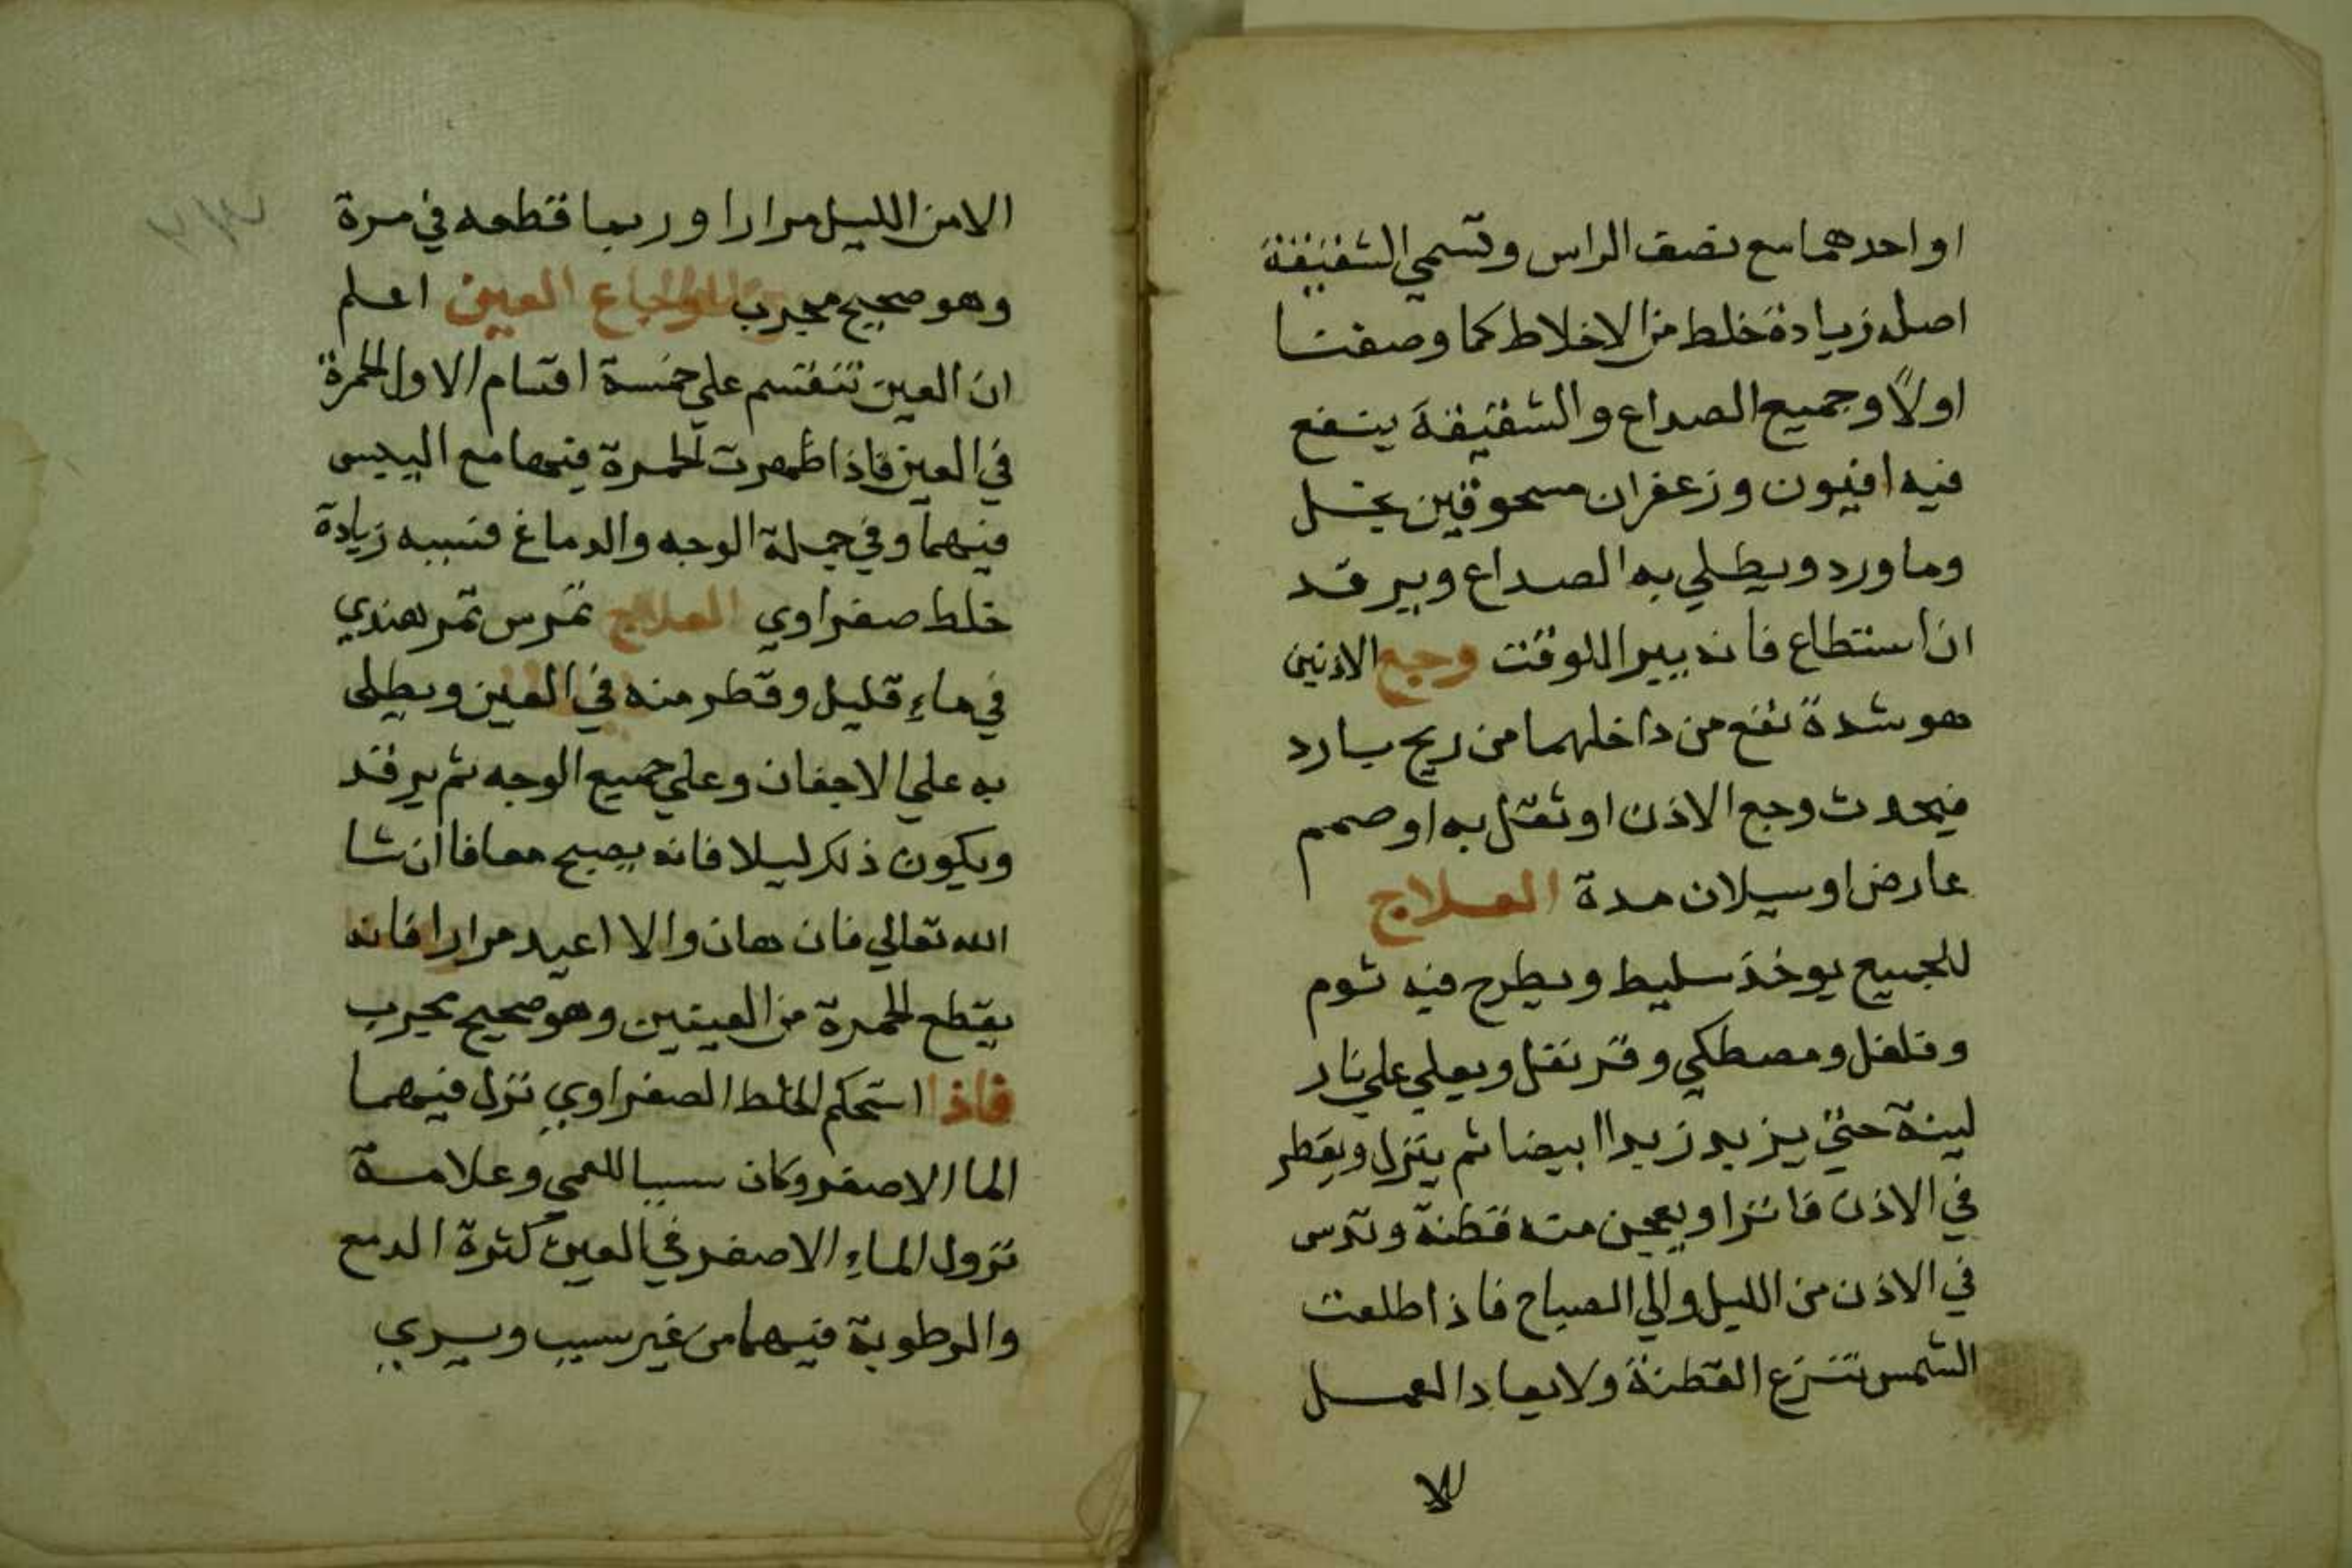 او احدهما مع نصف الراس وتسمي الشقيقة
اصله زيادة خلط من الاخلاط كما وصفنا
اولاً وجميع الصداع والشقيقة ينفع
فيه افيون وزعفران مسحوقين بخل
وما ورد ويطلي به الصداع ويرقد
ان استطاع فانه يبرا للوقت وجع الاذنين
هو شدة تقع من داخلهما من ريح بارد
فيحدث وجع الاذن او ثقل به او صمم
عارض او سيلان مدة العلاج
للجميع يوخذ سليط ويطرح فيه ثوم
وفلفل ومصطكي وقرنفل ويغلي علي نار
لينة حتي يزبد زبدا ابيضا ثم ينزل ويقطر
في الاذن فاترا ويعجن منه قطنة وتدس
في الاذن من الليل والي الصباح فاذا طلعت
الشمس تنزع القطنة ولا يعاد العمل
الا
الا من الليل مرارا وربما قطعه في مرة
وهو صحيح مجرب اوجاع العين اعلم
ان العين تنقسم علي خمسة اقسام الاول الحمرة
في العين فاذا ظهرت الحمرة فيها مع اليبس
فيهما وفي جملة الوجه والدماغ فسببه زيادة
خلط صفراوي العلاج تمرس تمر هندي
في ماء قليل وقطر منه في العين ويطلى
به علي الاجفان وعلي جميع الوجه ثم يرقد
ويكون ذلك ليلا فانه يصبح معافا ان شا
الله تعالي فان هان والا اعيد مرارا فانه
يقطع الحمرة من العينين وهو صحيح مجرب
فاذا استحكم الخلط الصفراوي نزل فيهما
الما الاصفر وكان سببا للعمي وعلامة
نزول الماء الاصفر في العين كثرة الدمع
والرطوبة فيهما من غير سبب ويري